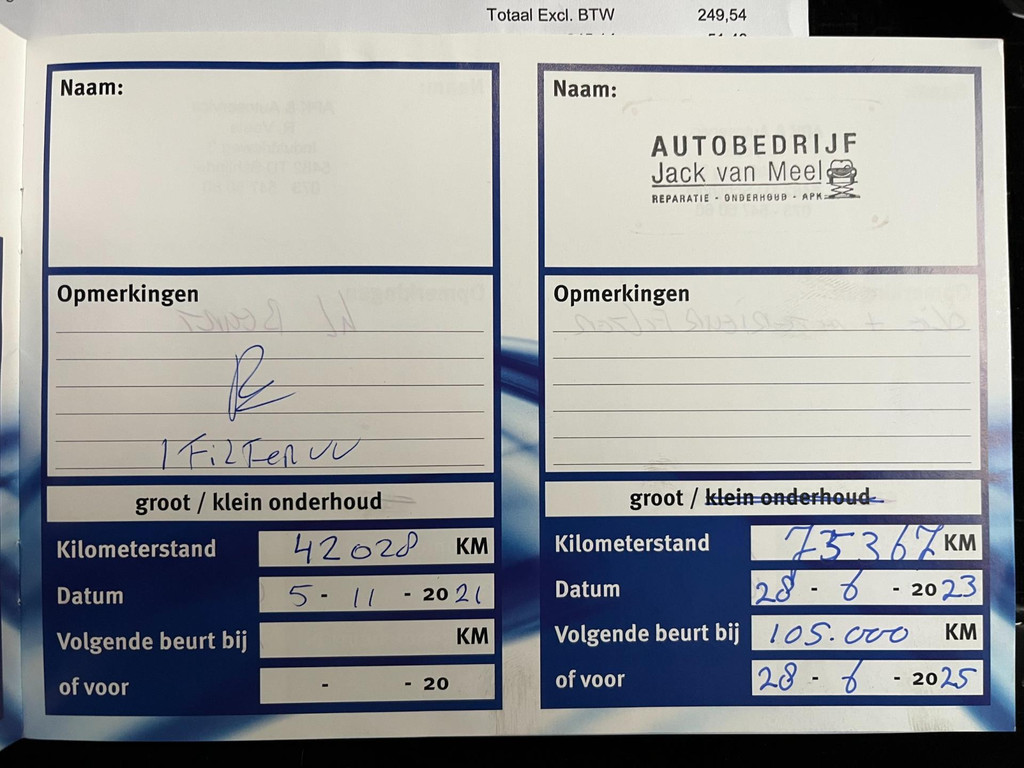 Totaal Excl. BTW 249,54
Naam:
Opmerkingen
1 FilTer VV
groot / klein onderhoud
Kilometerstand 42028 KM
Datum 5 - 11 - 2021
Volgende beurt bij KM
of voor - - 20
Naam:
AUTOBEDRIJF
Jack van Meel
REPARATIE - ONDERHOUD - APK
Opmerkingen
groot / klein onderhoud
Kilometerstand 75367 KM
Datum 28 - 6 - 2023
Volgende beurt bij 105.000 KM
of voor 28 - 6 - 2025